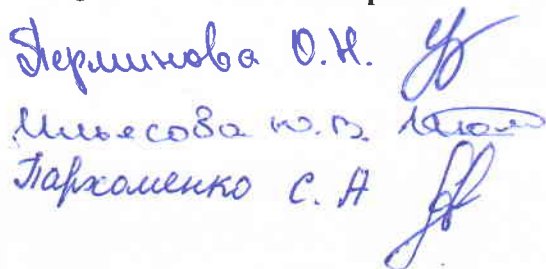 Перминова О.Н.
Ильясова Ю.В.
Пархоменко С.А